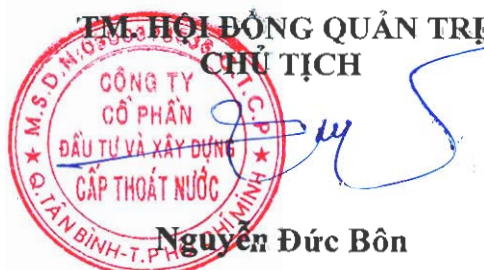 TM. HỘI ĐỒNG QUẢN TRỊ
CHỦ TỊCH
CÔNG TY
CỔ PHẦN
ĐẦU TƯ VÀ XÂY DỰNG
CẤP THOÁT NƯỚC
Q. TÂN BÌNH - T.P HỒ CHÍ MINH
Nguyễn Đức Bôn